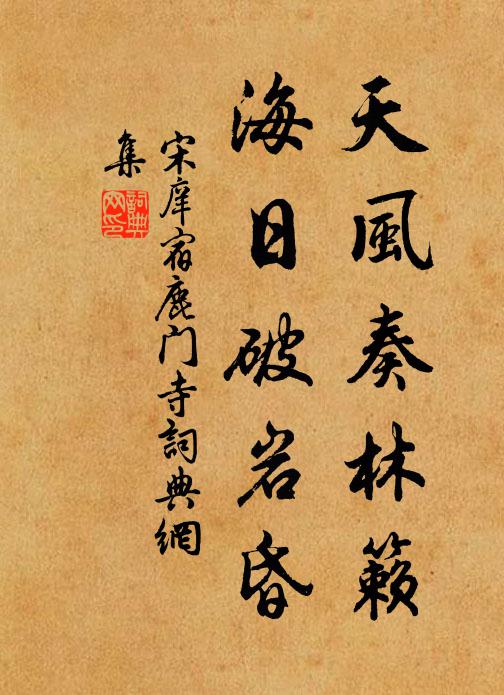 天風奏林籟
海日破岩昏
宋庠宿鹿门寺詞典網
集
詞典网印